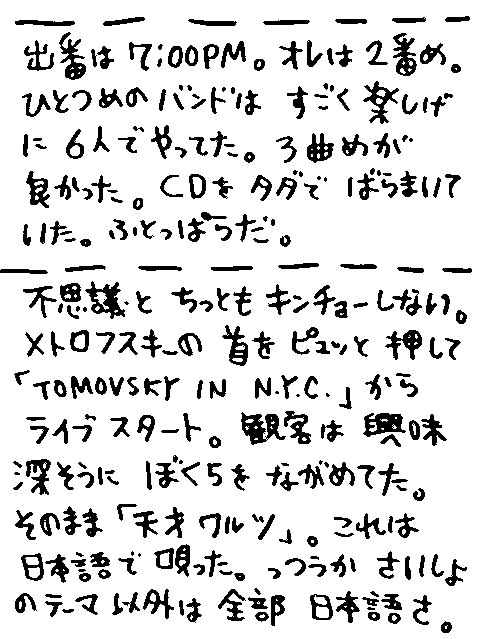 出番は7:00PM。オレは2番め。
ひとつめのバンドは すごく楽しげ
に 6人でやってた。3曲めが
良かった。CDをタダで ばらまいて
いた。ふとっぱらだ。
不思議と ちっともキンチョーしない。
メトロフスキーの 首を ピュッと 押して
「TOMOVSKY IN N.Y.C.」から
ライブ スタート。観客は 興味
深そうに ぼくらを ながめてた。
そのまま「天才ワルツ」。これは
日本語で 唄った。っつうか さいしょ
のテーマ以外は 全部 日本語さ。